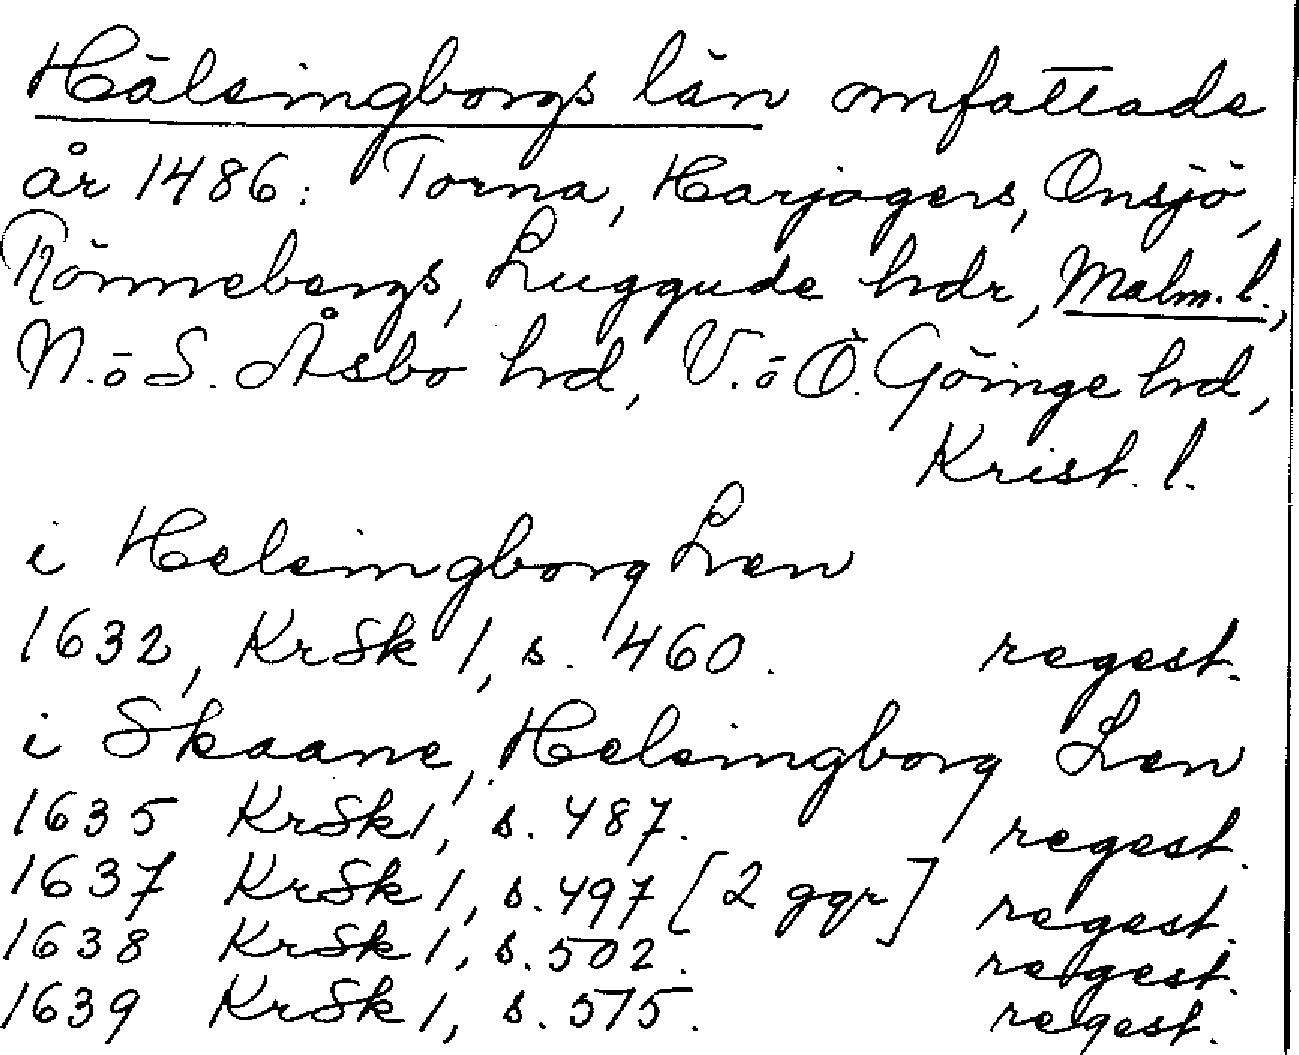 Hälsingborgs län omfattade
år 1486: Torna, Harjagers, Onsjö,
Rönnebergs, Luggude hdr, Malm. l.,
N. o S. Åsbo hd, V. o Ö. Göinge hd,
Krist. l.
i Helsingborg Len
1632, KrSk 1, s. 460. regest.
i Skaane, Helsingborg Len
1635 KrSk 1, s. 487. regest.
1637 KrSk 1, s. 497 [2 ggr] regest.
1638 KrSk 1, s. 502. regest.
1639 KrSk 1, s. 575. regest.